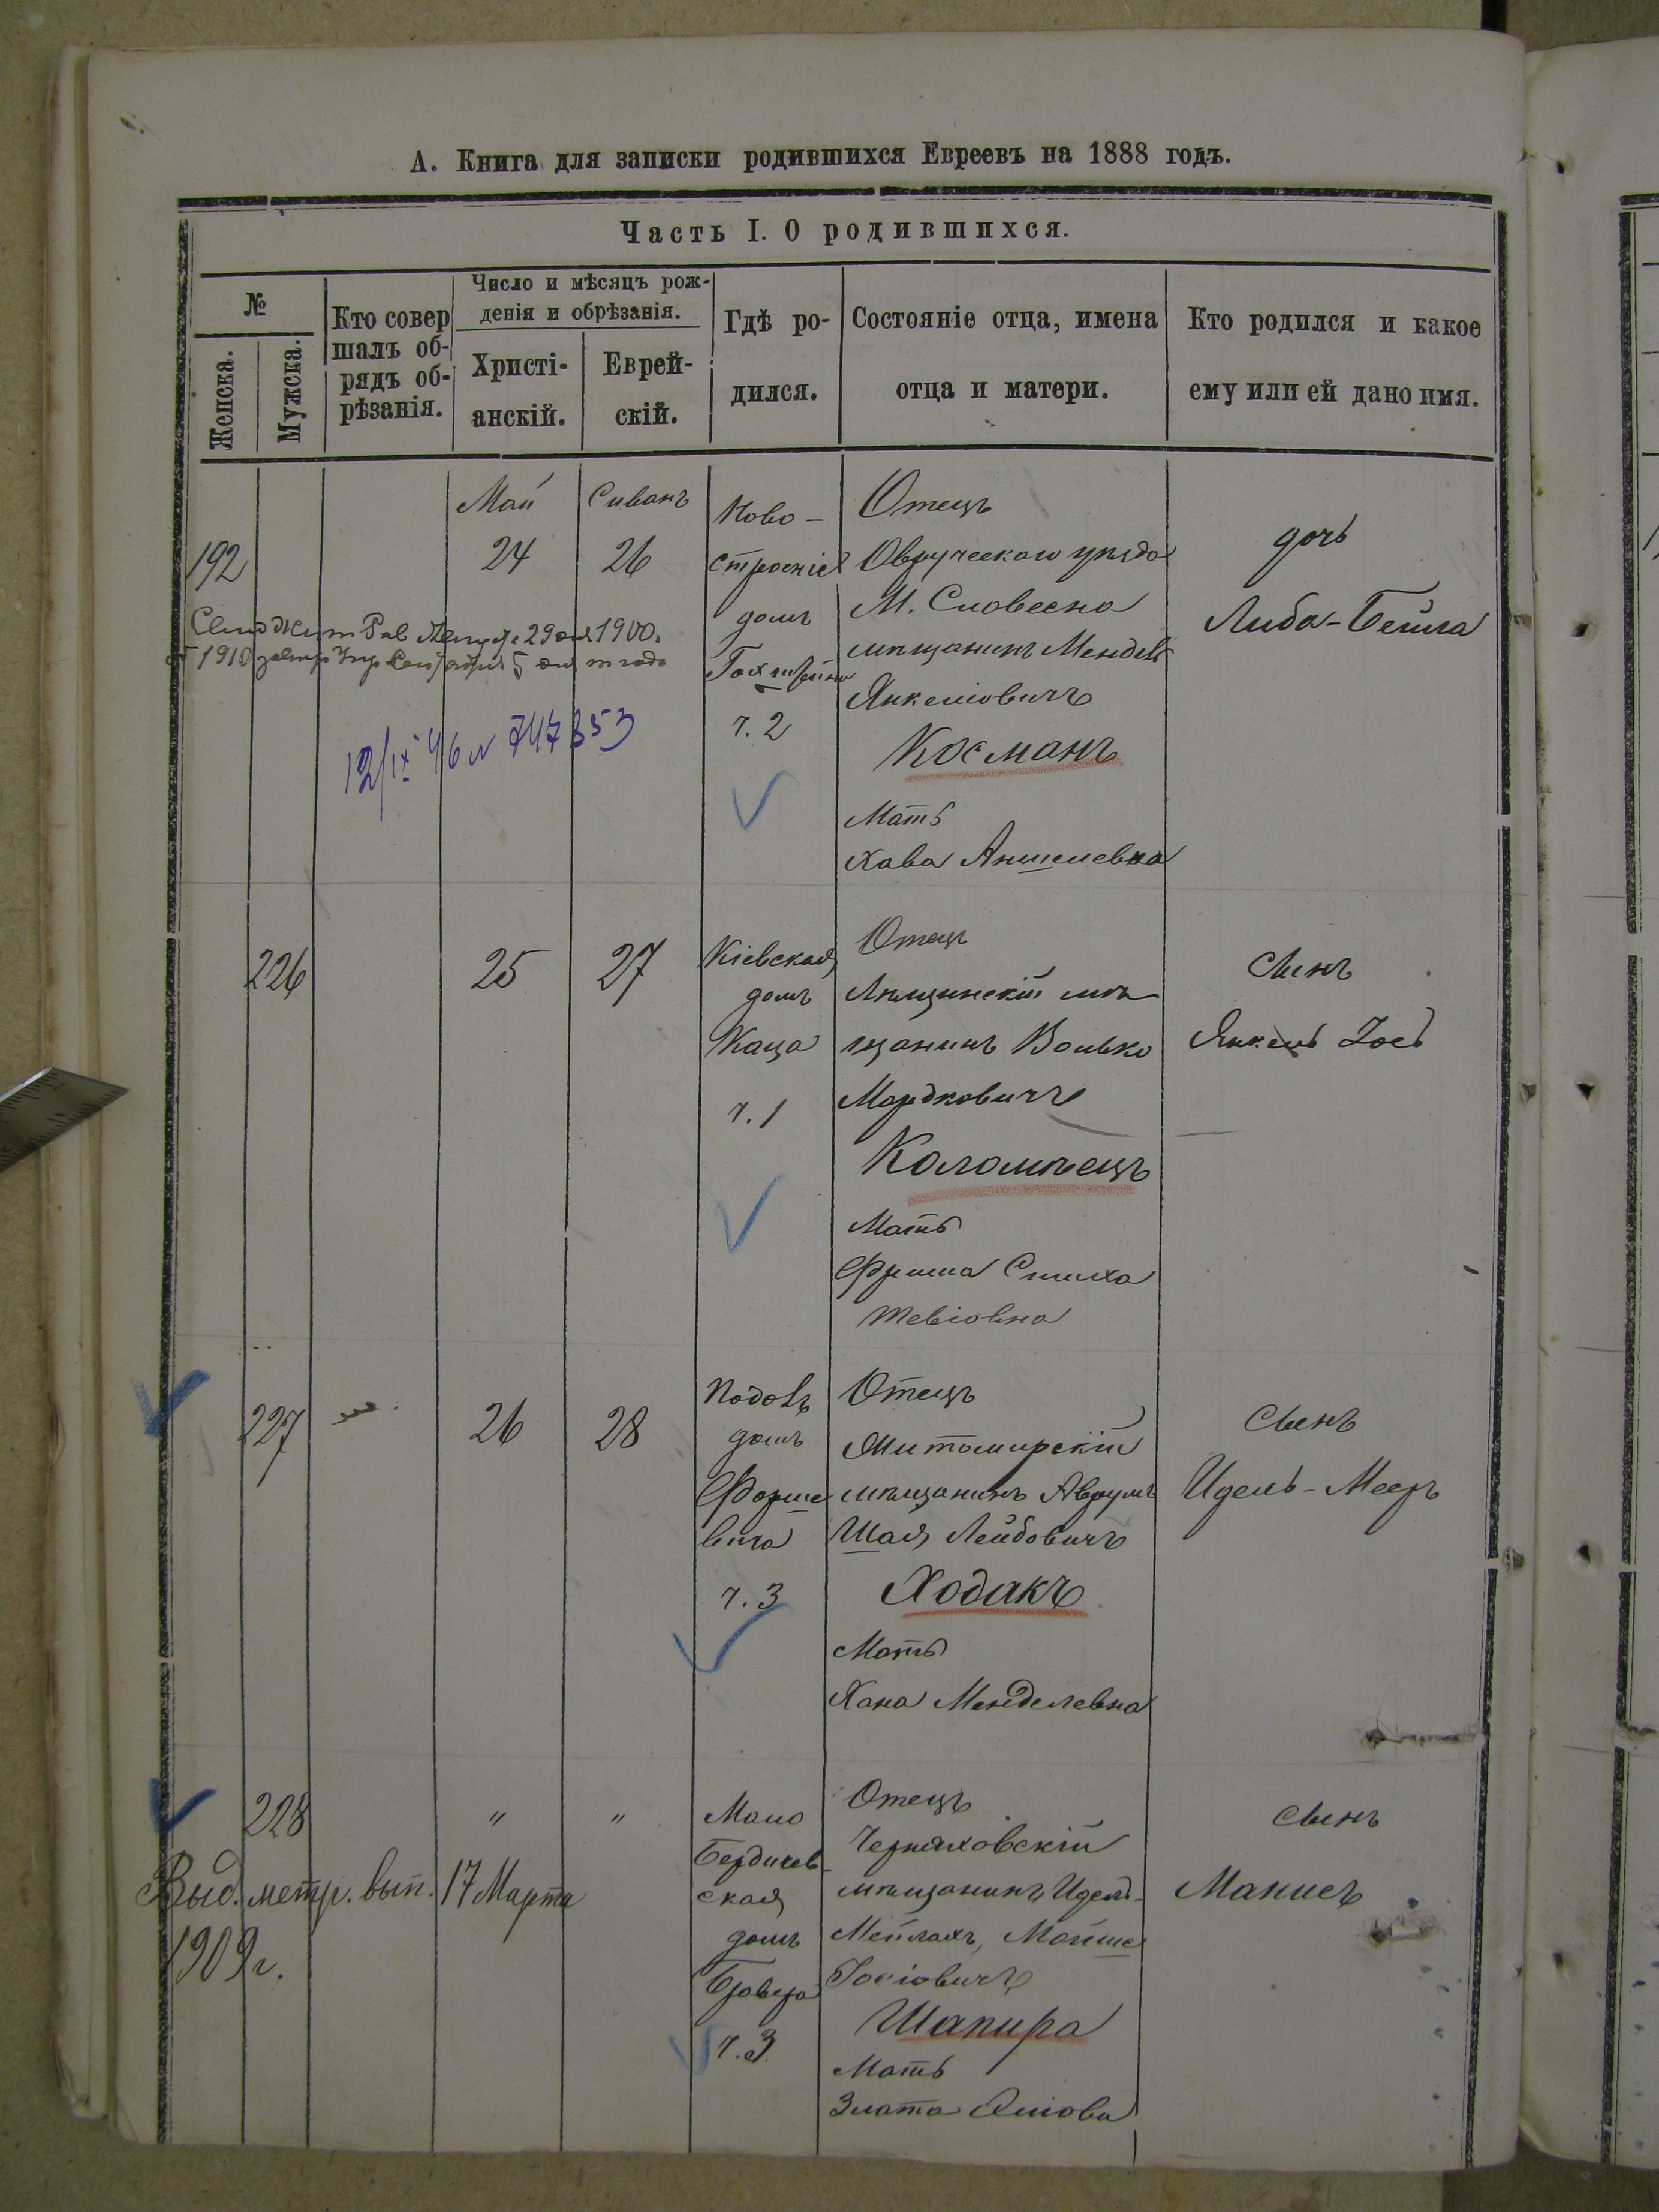 А. Книга для записки родившихся Евреевъ на 1888 годъ.
Часть I. О родившихся.
№
Женска.
Мужска.
Кто совер
шалъ об-
рядъ об-
рѣзанія.
Число и мѣсяцъ рож-
денія и обрѣзанія.
Христі-
анскій.
Еврей-
скій.
Гдѣ ро-
дился.
Состояніе отца, имена
отца и матери.
Кто родился и какое
ему или ей дано имя.
192
Май
24
Сиванъ
26
Ново-
строеніе
домъ
ч. 2
Отецъ
Овручскаго уѣзда
М. Словесно
мѣщанинъ Мендель
Янкеліовичъ
Косманъ
Мать
Хава Аншелевна
дочь
Либа-Бейла
29 1900.
1910
12/IX 46 N 747853
226
25
27
Кіевская
домъ
Каца
ч. 1
Отецъ
мѣ-
щанинъ Волько
Мордковичъ
Коломѣецъ
Мать
Симха
Тевіовна
сынъ
Янкель Іось
227
26
28
домъ
ч. 3
Отецъ
Житомирскій
мѣщанинъ Аврумъ
Шая Лейбовичъ
Ходакъ
Мать
Хана Менделевна
сынъ
Идель-Мееръ
228
"
"
Мало
Бердичев-
ская
домъ
ч. 3
Отецъ
Черняховскій
мѣщанинъ Идель-
Мейлахъ, Мойше
Іосіовичъ
Шапира
Мать
Злата
сынъ
Манисъ
Выд. метр. вып. 17 Марта
1909 г.